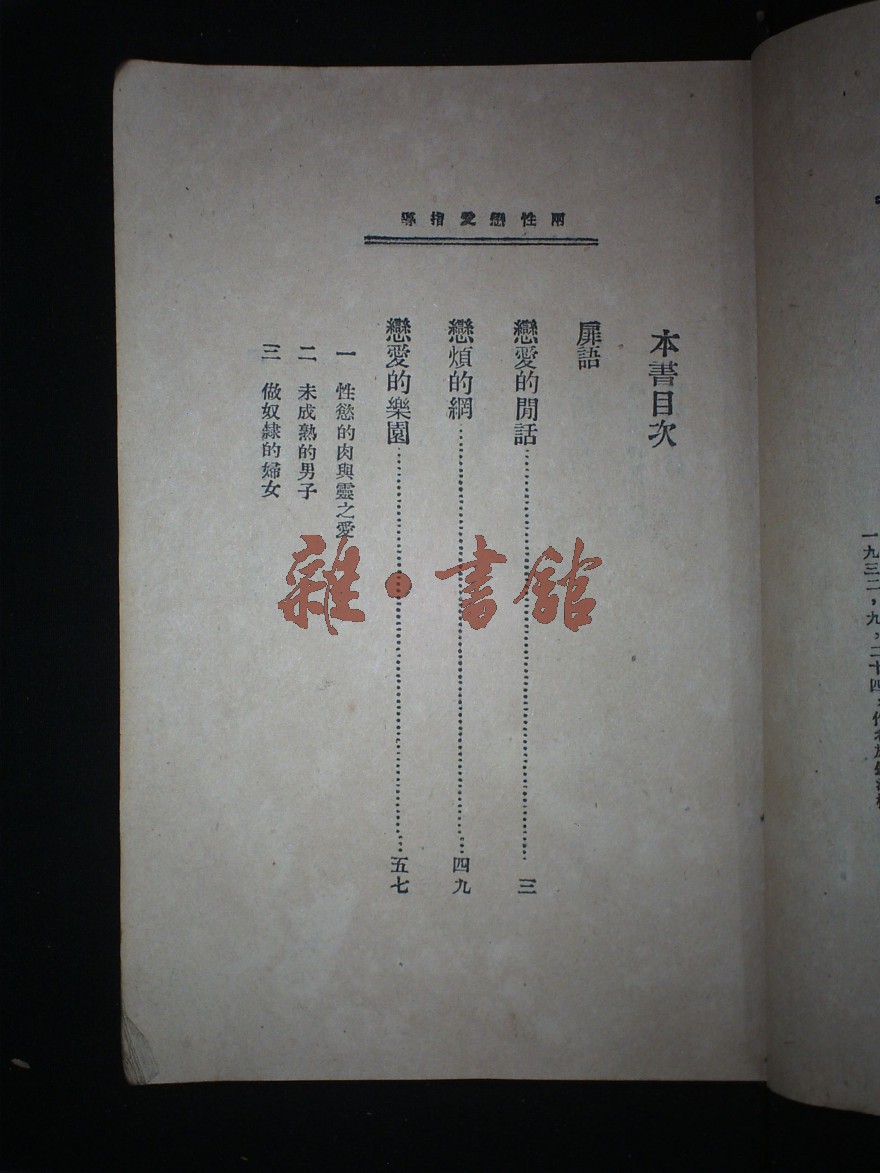 兩性戀愛指導
本書目次
扉語
戀愛的閒話……三
戀煩的網……四九
戀愛的樂園……五七
一 性慾的肉與靈之愛
二 未成熟的男子
三 做奴隸的婦女
雜·書館
一九三二，九，二十四，作者